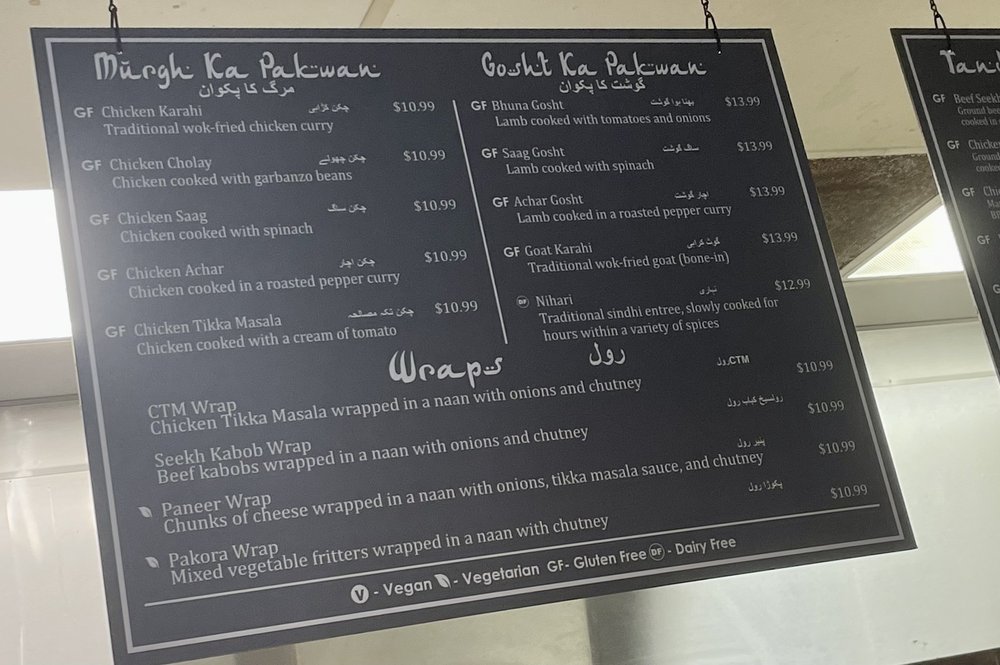 Murgh Ka Pakwan
مرگ کا پکوان
GF Chicken Karahi چکن کڑاہی $10.99
Traditional wok-fried chicken curry
GF Chicken Cholay چکن چھولے $10.99
Chicken cooked with garbanzo beans
GF Chicken Saag چکن ساگ $10.99
Chicken cooked with spinach
GF Chicken Achar چکن اچار $10.99
Chicken cooked in a roasted pepper curry
GF Chicken Tikka Masala چکن تکہ مصالحہ $10.99
Chicken cooked with a cream of tomato
Gosht Ka Pakwan
گوشت کا پکوان
GF Bhuna Gosht بھنا ہوا گوشت $13.99
Lamb cooked with tomatoes and onions
GF Saag Gosht ساگ گوشت $13.99
Lamb cooked with spinach
GF Achar Gosht اچار گوشت $13.99
Lamb cooked in a roasted pepper curry
GF Goat Karahi گوٹ کراہی $13.99
Traditional wok-fried goat (bone-in)
DF Nihari نہاری $12.99
Traditional sindhi entree, slowly cooked for
hours within a variety of spices
Wraps رول
CTM Wrap رول CTM $10.99
Chicken Tikka Masala wrapped in a naan with onions and chutney
Seekh Kabob Wrap رولسیخ کباب رول $10.99
Beef kabobs wrapped in a naan with onions and chutney
Paneer Wrap پنیر رول $10.99
Chunks of cheese wrapped in a naan with onions, tikka masala sauce, and chutney
Pakora Wrap پکوڑا رول $10.99
Mixed vegetable fritters wrapped in a naan with chutney
V - Vegan - Vegetarian GF- Gluten Free DF - Dairy Free
GF Beef Seekh
Ground
cooked in
GF
Ground
cooked
GF
GF